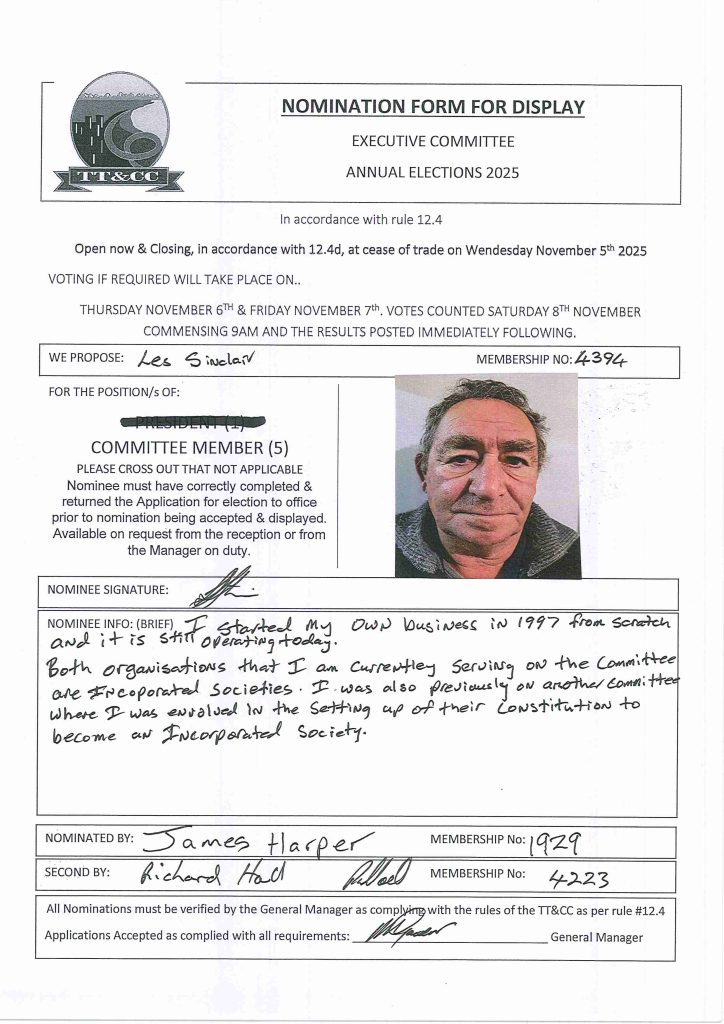 TT&CC
NOMINATION FORM FOR DISPLAY
EXECUTIVE COMMITTEE
ANNUAL ELECTIONS 2025
In accordance with rule 12.4
Open now & Closing, in accordance with 12.4d, at cease of trade on Wendesday November 5th 2025
VOTING IF REQUIRED WILL TAKE PLACE ON..
THURSDAY NOVEMBER 6TH & FRIDAY NOVEMBER 7th. VOTES COUNTED SATURDAY 8TH NOVEMBER
COMMENSING 9AM AND THE RESULTS POSTED IMMEDIATELY FOLLOWING.
WE PROPOSE: Les Sinclair MEMBERSHIP NO: 4394
FOR THE POSITION/s OF:
PRESIDENT (1)
COMMITTEE MEMBER (5)
PLEASE CROSS OUT THAT NOT APPLICABLE
Nominee must have correctly completed &
returned the Application for election to office
prior to nomination being accepted & displayed.
Available on request from the reception or from
the Manager on duty.
NOMINEE SIGNATURE:
NOMINEE INFO: (BRIEF) I started my own business in 1997 from scratch
and it is still operating today.
Both organisations that I am currentley serving on the committee
are Incoporated Societies. I was also previously on another committee
where I was envolved in the setting up of their constitution to
become an Incorporated Society.
NOMINATED BY: James Harper MEMBERSHIP No: 1929
SECOND BY: Richard Hall MEMBERSHIP No: 4223
All Nominations must be verified by the General Manager as complying with the rules of the TT&CC as per rule #12.4
Applications Accepted as complied with all requirements: General Manager